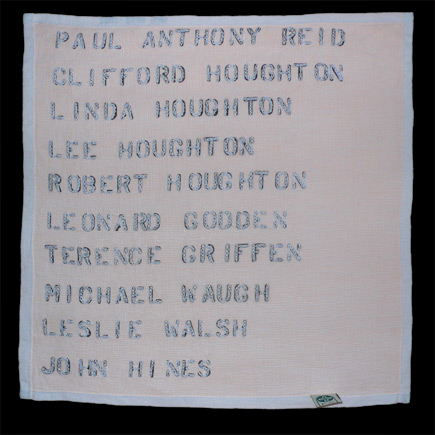 PAUL ANTHONY REID
CLIFFORD HOUGHTON
LINDA HOUGHTON
LEE HOUGHTON
ROBERT HOUGHTON
LEONARD GODDEN
TERENCE GRIFFEN
MICHAEL WAUGH
LESLIE WALSH
JOHN HINES